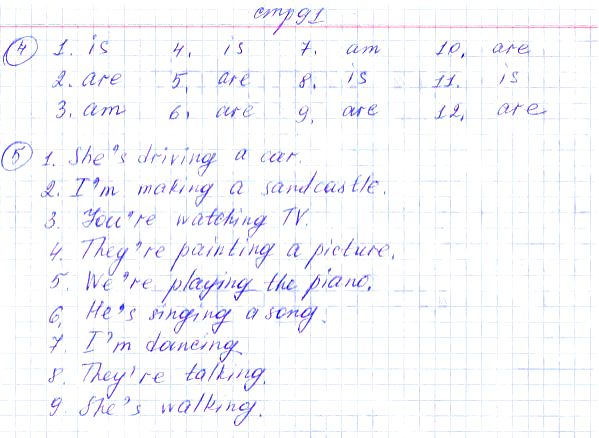 стр 91
4 1. is 4. is 7. am 10. are
2. are 5. are 8. is 11. is
3. am 6. are 9. are 12. are
5 1. She's driving a car.
2. I'm making a sandcastle.
3. You're watching TV.
4. They're painting a picture.
5. We're playing the piano.
6. He's singing a song.
7. I'm dancing
8. They're talking.
9. She's walking.